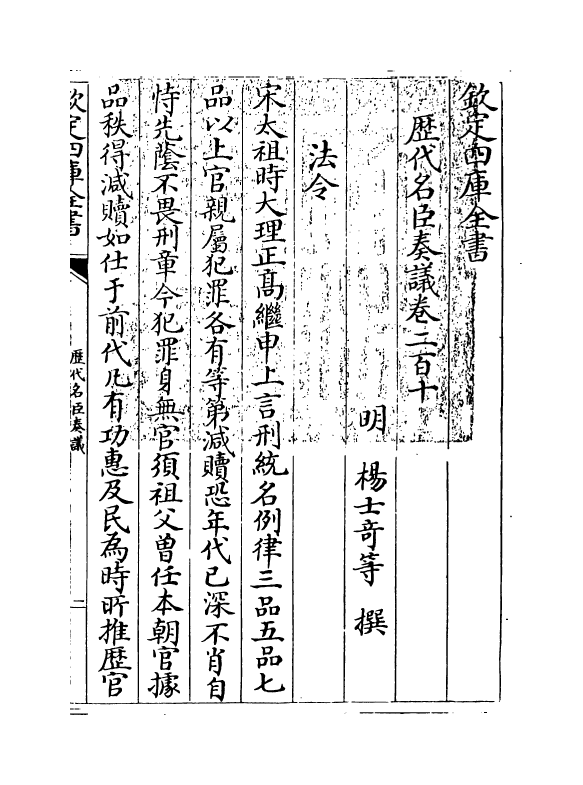 欽定四庫全書
歷代名臣奏議卷二百十
明 楊士奇等 撰
法令
宋太祖時大理正髙繼申上言刑統名例律三品五品七
品以上官親屬犯罪各有等第減贖恐年代已深不肖自
恃先蔭不畏刑章今犯罪身無官須祖父曾任本朝官據
品秩得減贖如仕于前代凡有功惠及民為時所推歷官
欽定四庫全書
歷代名臣奏議
二